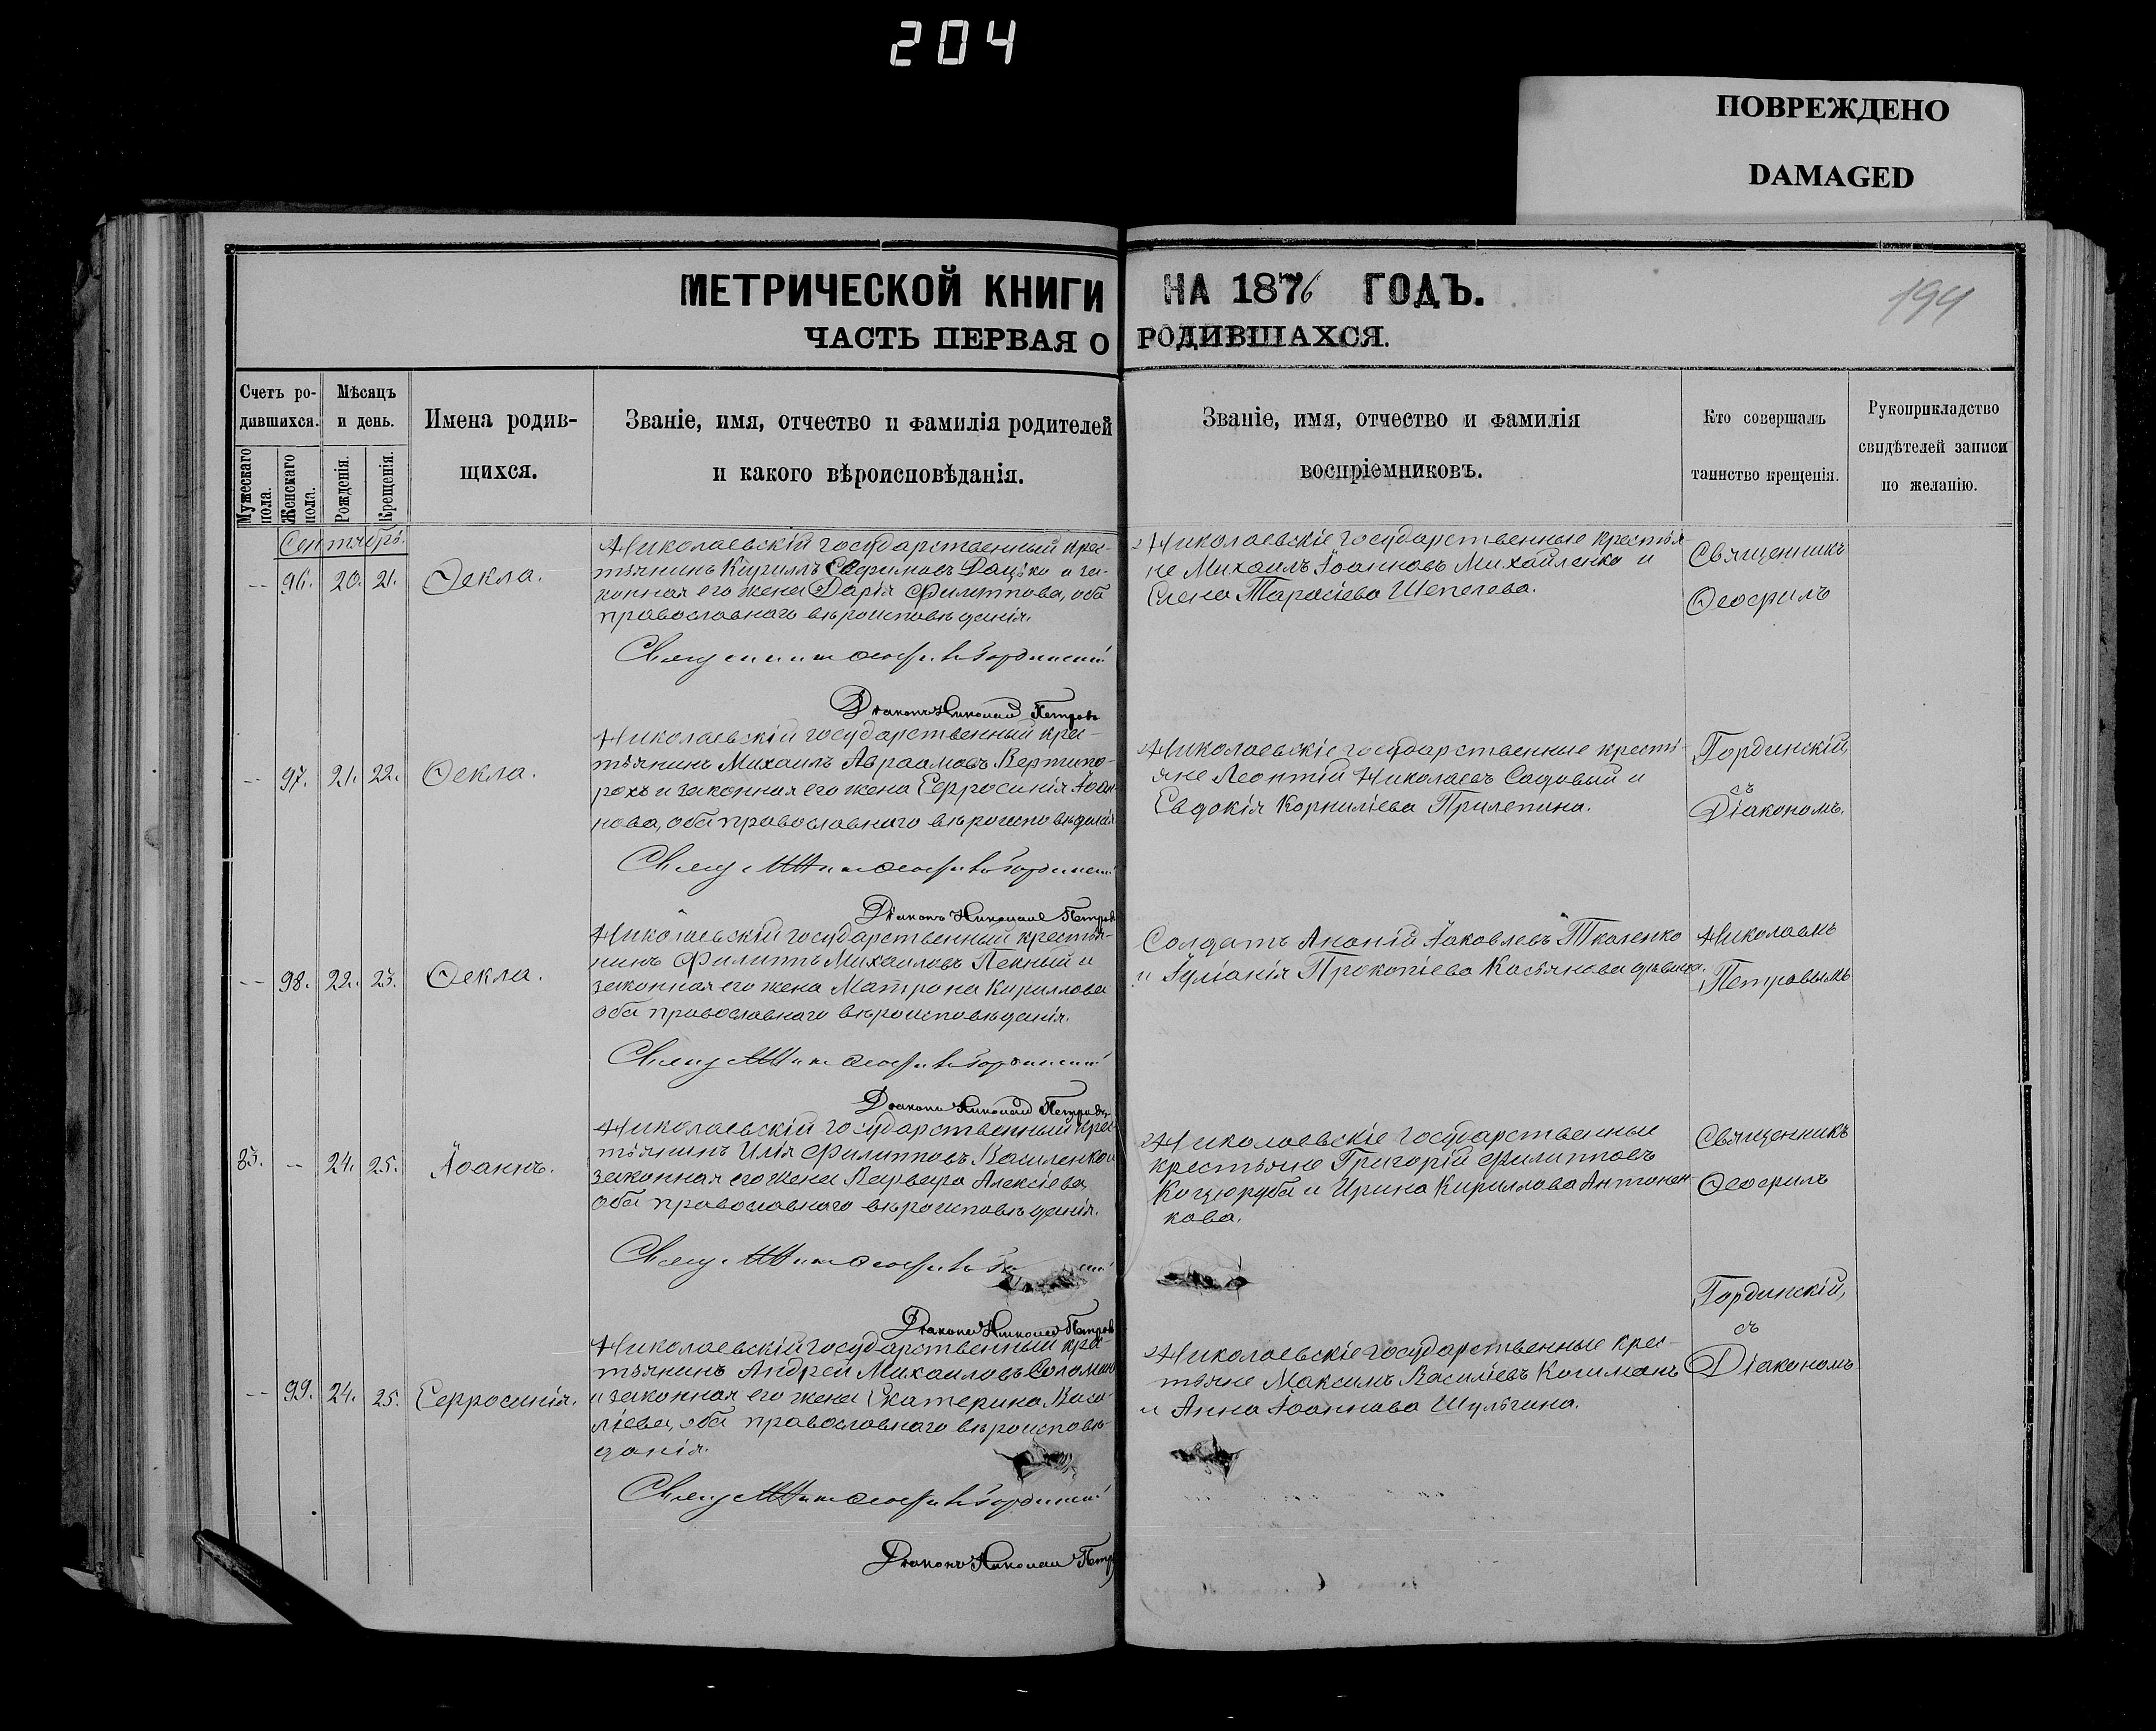 204
ПОВРЕЖДЕНО
DAMAGED
МЕТРИЧЕСКОЙ КНИГИ НА 1876 ГОДЪ.
194
ЧАСТЬ ПЕРВАЯ О РОДИВШАХСЯ.
Счетъ ро-
дившихся.
Мужескаго
пола.
Женскаго
пола.
Мѣсяцъ
и день.
Рожденія.
Крещенія.
Имена родив-
щихся.
Званіе, имя, отчество и фамилія родителей
и какого вѣроисповѣданія.
Званіе, имя, отчество и фамилія
воспріемниковъ.
Кто совершалъ
таинство крещенія.
Рукоприкладство
свидѣтелей записи
по желанію.
Сентябрь.
-- 96. 20. 21. Ѳекла.
Николаевскій государственный крес-
тьянинъ Кириллъ Евфимовъ Дацько и за-
конная его жена Дарія Филиппова, оба
православнаго вѣроисповѣданія.
Священникъ Ѳеофилъ Гординскій
Діаконъ Николай Петровъ
Николаевскіе государственные крестья-
не Михаилъ Іоанновъ Михайленко и
Елена Тарасіева Шепелева.
Священникъ
Ѳеофилъ
-- 97. 21. 22. Ѳекла.
Николаевскій государственный крес-
тьянинъ Михаилъ Авраамовъ Вертипо-
рохъ и законная его жена Евфросинія Іоан-
нова, оба православнаго вѣроисповѣданія
Священникъ Ѳеофилъ Гординскій
Діаконъ Николай Петровъ
Николаевскіе государственные кресть-
яне Леонтій Николаевъ Садовый и
Евдокія Корниліева Прилепина.
Гординскій,
съ
Діакономъ.
-- 98. 22. 23. Ѳекла.
Николаевскій государственный крестья-
нинъ Филиппъ Михаиловъ Пенный и
законная его жена Матрона Кириллова
оба православнаго вѣроисповѣданія.
Священникъ Ѳеофилъ Гординскій
Діаконъ Николай Петровъ
Солдатъ Ананій Іаковлевъ Ткаленко
и Іуліанія Прокопіева Касьянова дѣвица.
Николаемъ
Петровымъ
83. -- 24. 25. Іоаннъ.
Николаевскій государственный крес-
тьянинъ Илія Филипповъ Василенко и
законная его жена Варвара Алексіева,
оба православнаго вѣроисповѣданія.
Священникъ Ѳеофилъ
Діаконъ Николай Петровъ
Николаевскіе государственные
крестьяне Григорій Филипповъ
Коцюруба и Ирина Кириллова Антонен-
кова.
Священникъ
Ѳеофилъ
Гординскій,
съ
Діакономъ
-- 99. 24. 25. Евфросинія.
Николаевскій государственный крес-
тьянинъ Андрей Михаиловъ
и законная его жена Екатерина Васи-
ліева, оба православнаго вѣроисповѣ-
данія.
Священникъ Ѳеофилъ Гординскій
Діаконъ Николай
Николаевскіе государственные крес-
тьяне Максимъ Василіевъ Кошманъ
и Анна Іоаннова Шульгина.